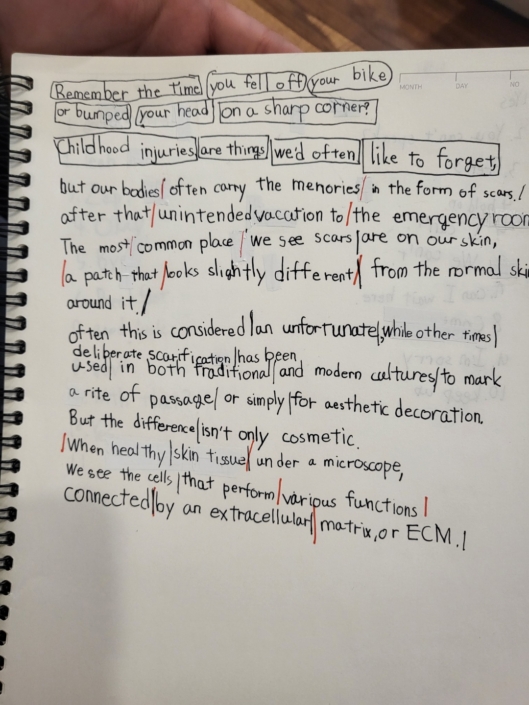 MONTH DAY NO
Remember the time you fell off your bike
or bumped your head on a sharp corner?
Childhood injuries are things we'd often like to forget,
but our bodies/ often carry the memories/ in the form of scars./
after that/unintended vacation to/the emergency room
The most/common place/we see scars|are on our skin,
/a patch that/looks slightly different/ from the normal ski
around it./
often this is considered|an unfortunate|,while other times|
deliberate scarification|has been
used|in both traditional|and modern cultures/to mark
a rite of passage/ or simply/for aesthetic decoration.
But the difference|isn't only cosmetic.
/When healthy/skin tissue/under a microscope,
We see the cells|that perform/various functions|
connected|by an extracellular|matrix,or ECM.|